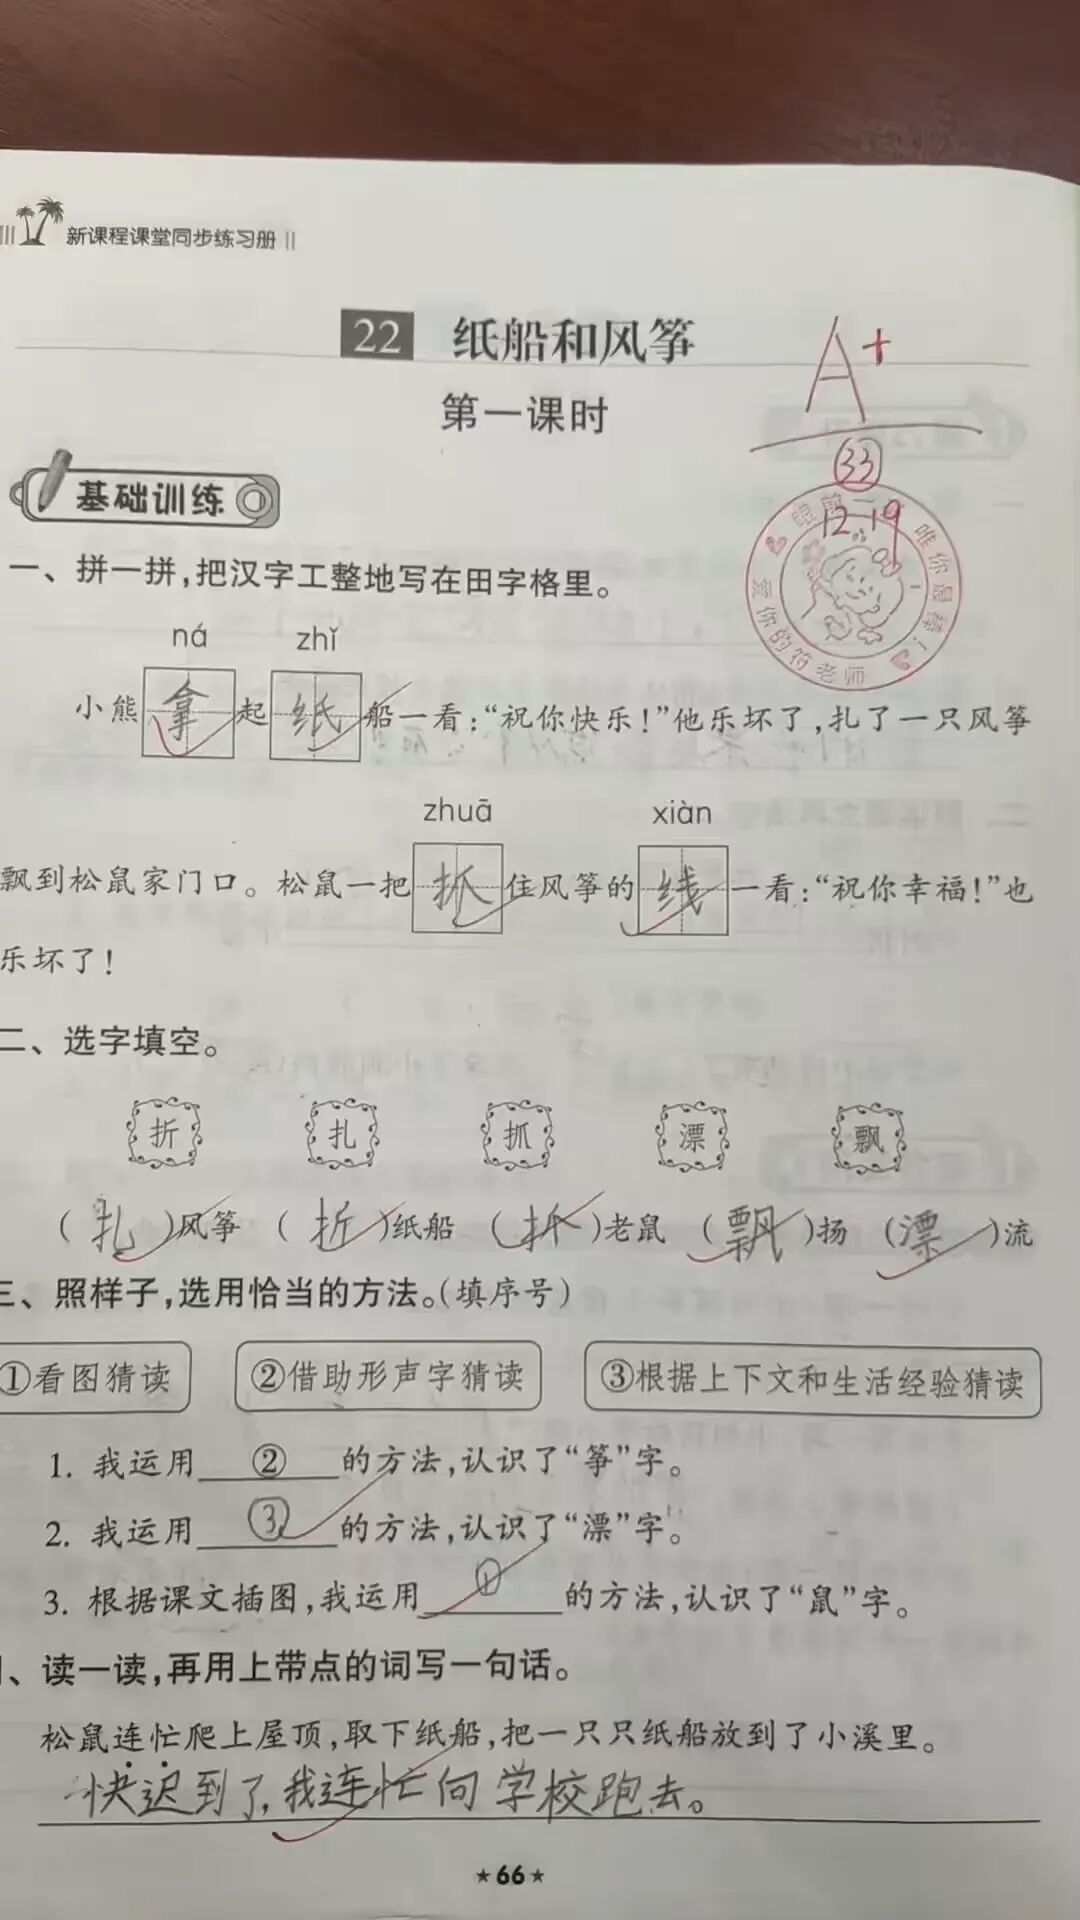 新课程课堂同步练习册
22 纸船和风筝
A+
第一课时
33
12.19
眼前一 唯你最棒！
爱你的符老师
基础训练
一、拼一拼，把汉字工整地写在田字格里。
ná zhǐ
小熊拿起纸船一看：“祝你快乐！”他乐坏了，扎了一只风筝
zhuā xiàn
飘到松鼠家门口。松鼠一把抓住风筝的线一看：“祝你幸福！”也
乐坏了！
二、选字填空。
折 扎 抓 漂 飘
（扎）风筝 （折）纸船 （抓）老鼠 （飘）扬 （漂）流
三、照样子，选用恰当的方法。（填序号）
①看图猜读 ②借助形声字猜读 ③根据上下文和生活经验猜读
1. 我运用②的方法，认识了“筝”字。
2. 我运用③的方法，认识了“漂”字。
3. 根据课文插图，我运用①的方法，认识了“鼠”字。
、读一读，再用上带点的词写一句话。
松鼠连忙爬上屋顶，取下纸船，把一只只纸船放到了小溪里。
快迟到了，我连忙向学校跑去。
★66★